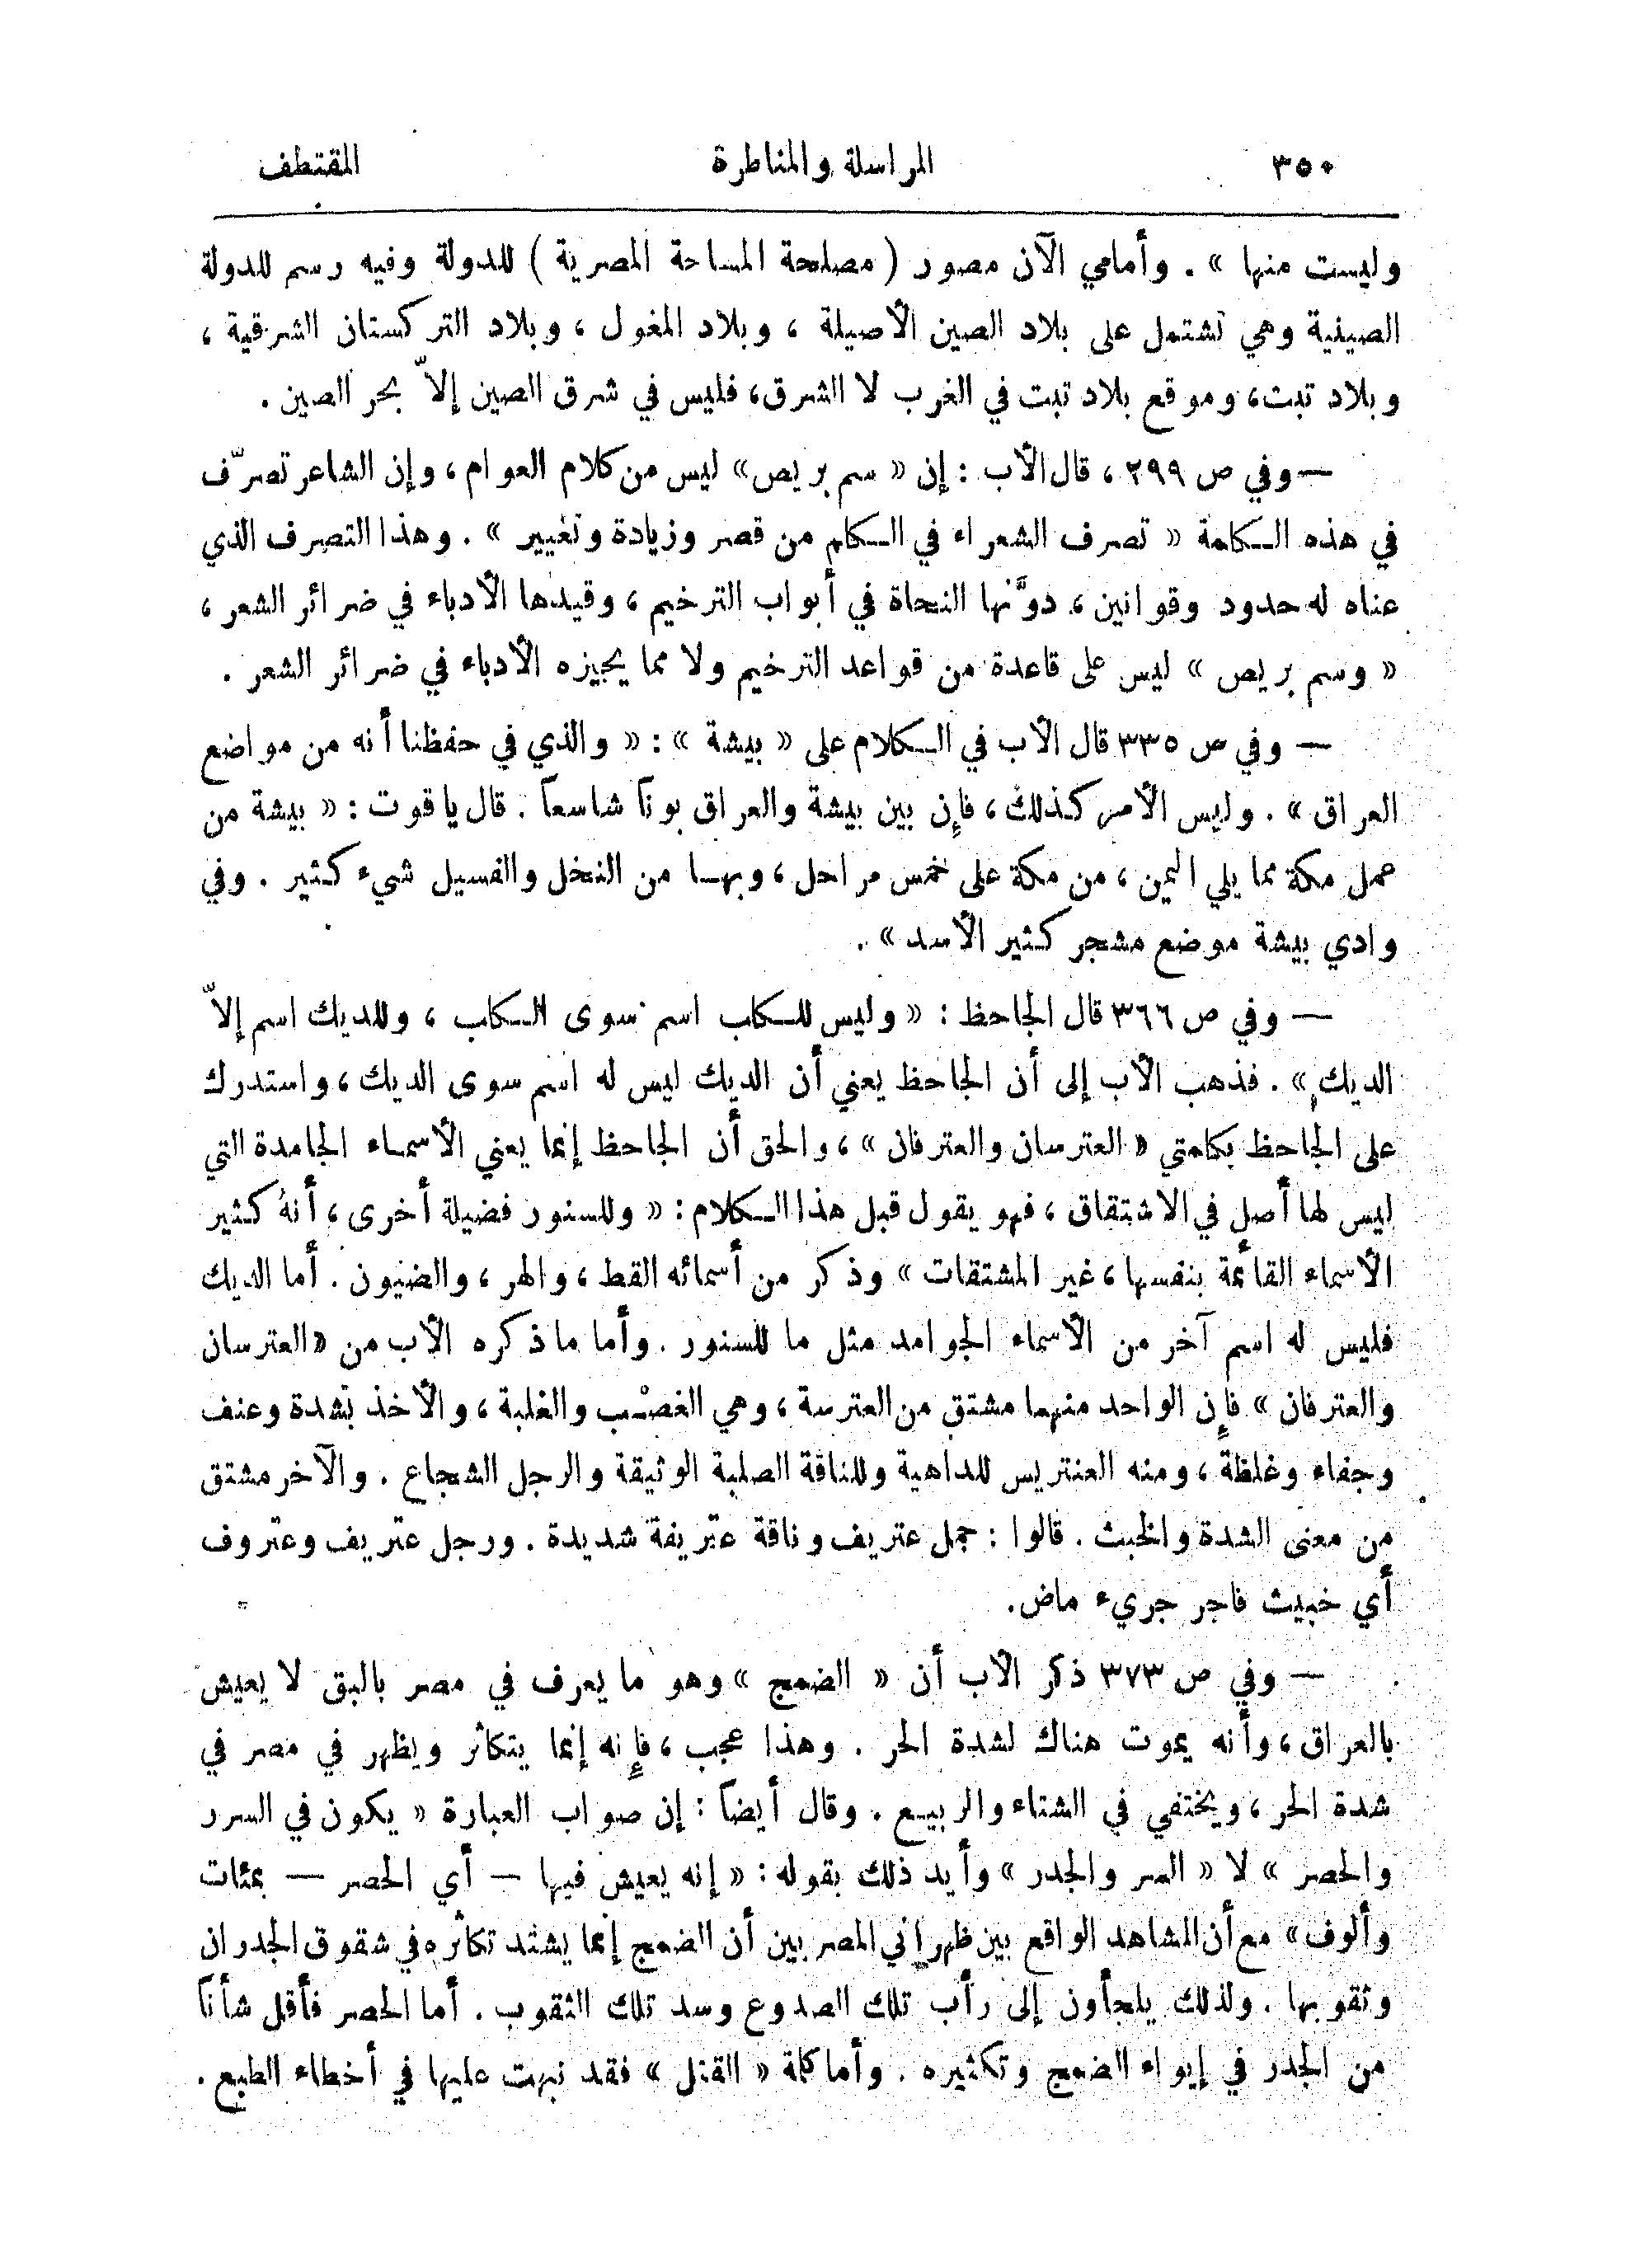 ٣٥٠ المراسلة والمناظرة المقتطف
وليست منها » . وأمامي الآن مصور ( مصلحة المساحة المصرية ) للدولة وفيه رسم للدولة
الصينية وهي تشتمل على بلاد الصين الأصيلة ، وبلاد المغول ، وبلاد التركستان الشرقية ،
وبلاد تبت، وموقع بلاد تبت في الغرب لا الشرق، فليس في شرق الصين إلاّ بحر الصين .
— وفي ص ٢٩٩ ، قال الأب : إن « سم بريص» ليس من كلام العوام، وإن الشاعر تصرّف
في هذه الكلمة « تصرف الشعراء في الكلم من قصر وزيادة وتغيير » . وهذا التصرف الذي
عناه له حدود وقوانين ، دوَّنها النحاة في أبواب الترخيم ، وقيدها الأدباء في ضرائر الشعر ،
« وسم بريص » ليس على قاعدة من قواعد الترخيم ولا مما يجيزه الأدباء في ضرائر الشعر .
— وفي ص ٣٣٥ قال الأب في الكلام على « بيشة » : « والذي في حفظنا أنه من مواضع
العراق » . وليس الأمر كذلك ، فإن بين بيشة والعراق بوناً شاسعاً . قال ياقوت : « بيشة من
عمل مكة مما يلي اليمن ، من مكة على خمس مراحل ، وبها من النخل والفسيل شيء كثير . وفي
وادي بيشة موضع مشجر كثير الأسد » .
— وفي ص ٣٦٦ قال الجاحظ : « وليس للكلب اسم سوى الكلب ، وللديك اسم إلاّ
الديك » . فذهب الأب إلى أن الجاحظ يعني أن الديك ليس له اسم سوى الديك ، واستدرك
على الجاحظ بكلمتي « العترسان والعترفان » ، والحق أن الجاحظ إنما يعني الأسماء الجامدة التي
ليس لها أصل في الاشتقاق ، فهو يقول قبل هذا الكلام : « وللسنور فضيلة أخرى ، أنهُ كثير
الأسماء القائمة بنفسها ، غير المشتقات » وذكر من أسمائه القط ، والهر ، والضيون . أما الديك
فليس له اسم آخر من الأسماء الجوامد مثل ما للسنور . وأما ما ذكره الأب من « العترسان
والعترفان » فإن الواحد منهما مشتق من العترسة ، وهي الغصْب والغلبة ، والأخذ بشدة وعنف
وجفاء وغلظة ، ومنه العنتريس للداهية وللناقة الصلبة الوثيقة والرجل الشجاع . والآخر مشتق
من معنى الشدة والخبث . قالوا : جمل عتريف وناقة عتريفة شديدة . ورجل عتريف وعتروف
أي خبيث فاجر جريء ماض.
— وفي ص ٣٧٣ ذكر الأب أن « الضمج » وهو ما يعرف في مصر بالبق لا يعيش
بالعراق ، وأنه يموت هناك لشدة الحر . وهذا عجب ، فإنه إنما يتكاثر ويظهر في مصر في
شدة الحر ، ويختفي في الشتاء والربيع . وقال أيضاً : إن صواب العبارة « يكون في السرر
والحصر » لا « السر والجدر » وأيد ذلك بقوله : « إنه يعيش فيها — أي الحصر — بمئات
وألوف» مع أن المشاهد الواقع بين ظهراني المصريين أن الضمج إنما يشتد تكاثره في شقوق الجدران
وثقوبها . ولذلك يلجأون إلى رأب تلك الصدوع وسد تلك الثقوب . أما الحصر فأقل شأناً
من الجدر في إيواء الضمج وتكثيره . وأما كلمة « القنل » فقد نبهت عليها في أخطاء الطبع .